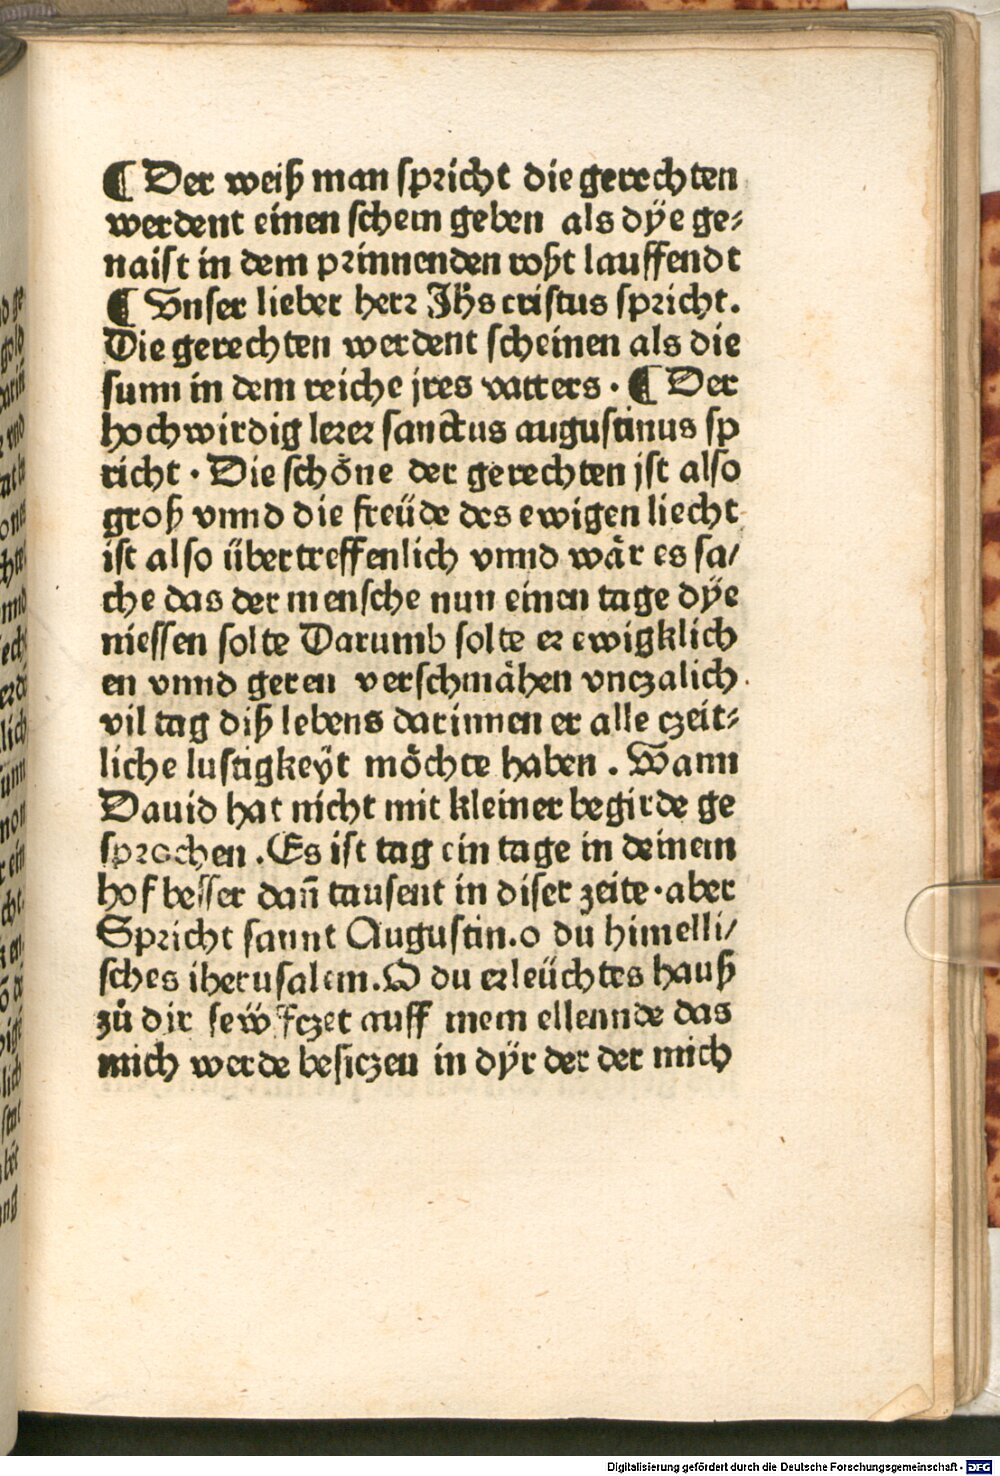 ¶ Der weiß man spricht die gerechten
werdent einen schein geben als dÿe ge⸗
naist in dem prinnenden roßt lauffendt
¶ Vnser lieber herr Jhs cristus spricht.
Die gerechten werdent scheinen als die
sunn in dem reiche jres vatters · ¶ Der
hochwirdig lerer sanctus augustinus sp
richt · Die schöne der gerechten jst also
groß vnnd die freüde des ewigen liecht
ist also übertreffenlich vnnd wär es sa/
che das der mensche nun einen tage dÿe
niessen solte Darumb solte er ewigklich
en vnnd geren verschmähen vnczalich
vil tag diß lebens darinnen er alle czeit⸗
liche lustigkeÿt möchte haben . Wann
Dauid hat nicht mit kleiner begirde ge
sprochen . Es ist tag ein tage in deinem
hof besser dann̄ tausent in diser zeite · aber
Spricht sannt Augustin. o du himelli/
sches iherusalem. O du erleüchtes hauß
zů dir sewfczet auff mein ellennde das
mich werde besiczen in dÿr der der mich
Digitalisierung gefördert durch die Deutsche Forschungsgemeinschaft - DFG